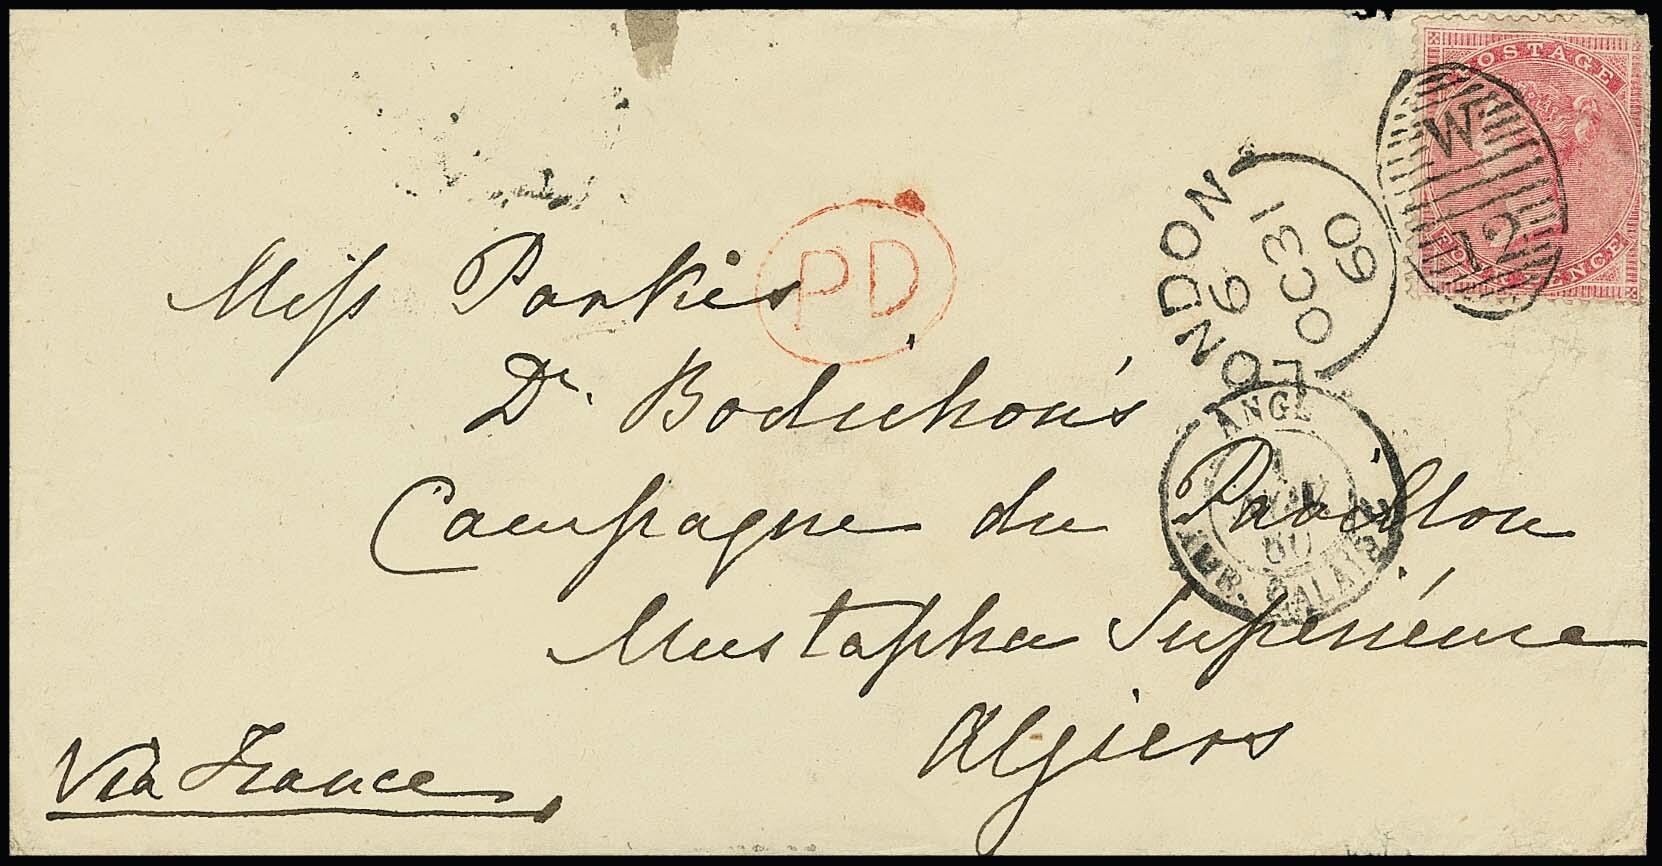 POSTAGE
FOUR PENCE
W
12
LONDON
6
OC 31
60
PD
Miss Parkes
Dr. Bodichon's
Campagne du Pavillon
Mustapha Supérieure
Algiers
Via France
ANGL.
1
NOV
60
AMB. CALAIS